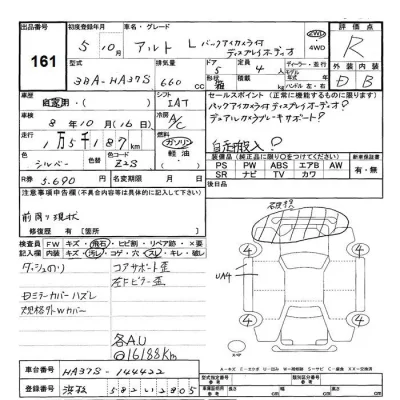 出品番号
161
初度登録年月
5年 10月
車名・グレード
アルト L バックアイカメラ付
ディスプレイオーディオ
2WD
4WD
評価点
R
型式
3BA-HA37S
排気量
660 CC
ドア
5
形状
定員
4 人
ディーラー・並行
モデル
年式
ハンドル 左・右
外装
D
内装
B
車歴
自家用・( )
シフト
IAT
車検
8年 10月 (16日)
冷房
A/C
走行
1万5千187 km
燃料
ガソリン
軽油
色
シルバー
色替
カラーNo.
Z2S
R券
5,690
名変期限
月 日
セールスポイント(正常に機能するものに限ります)
バックアイカメラ付ディスプレイオーディオ?
デュアルカメラブレーキサポート?
自走搬入?
装備品(純正品に限り○をつけてください)
新車保証書
PS PW ABS エアB AW
SR ナビ TV カワ
有・無
後日品
注意事項申告欄(不具合内容等は具体的に記入して下さい)
前廻り現状
修復歴 有( )[箇所 ]
検査員記入欄
FW キズ・飛石・ヒビ割・リペア跡・×要
内装 キズ・汚レ・コゲ・穴・スレ・キレ・破レ
ダッシュのり
コアサポート歪
左Fピラー歪
ロミラーカバーハズレ
規格外Wカバー
各A.U
@16188Km
UA4
4
4
4
4
車台番号
HA37S-144422
登録番号
582い2805
型式指定番号
類別区分番号
長さ
幅
高さ